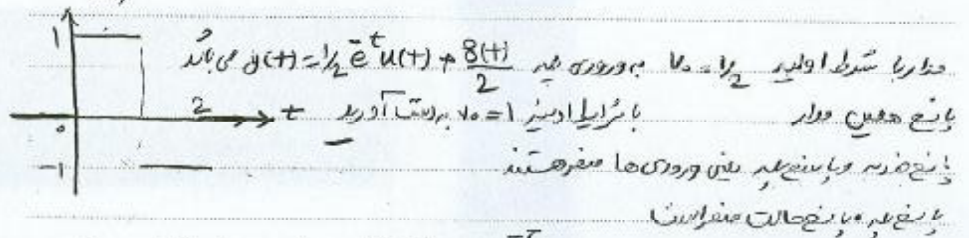 مدار با شرط اولیه v₀ = ½ به ورودی ضربه y(t) = ½ e⁻ᵗ u(t) + δ(t)/2 می باشد
پاسخ همین مدار با شرایط اولیه v₀ = 1 بدست آورید
پاسخ ضربه و پاسخ پله یعنی ورودی ها صفر هستند
پاسخ پله پاسخ حالت صفر است
1
2
t
0
-1